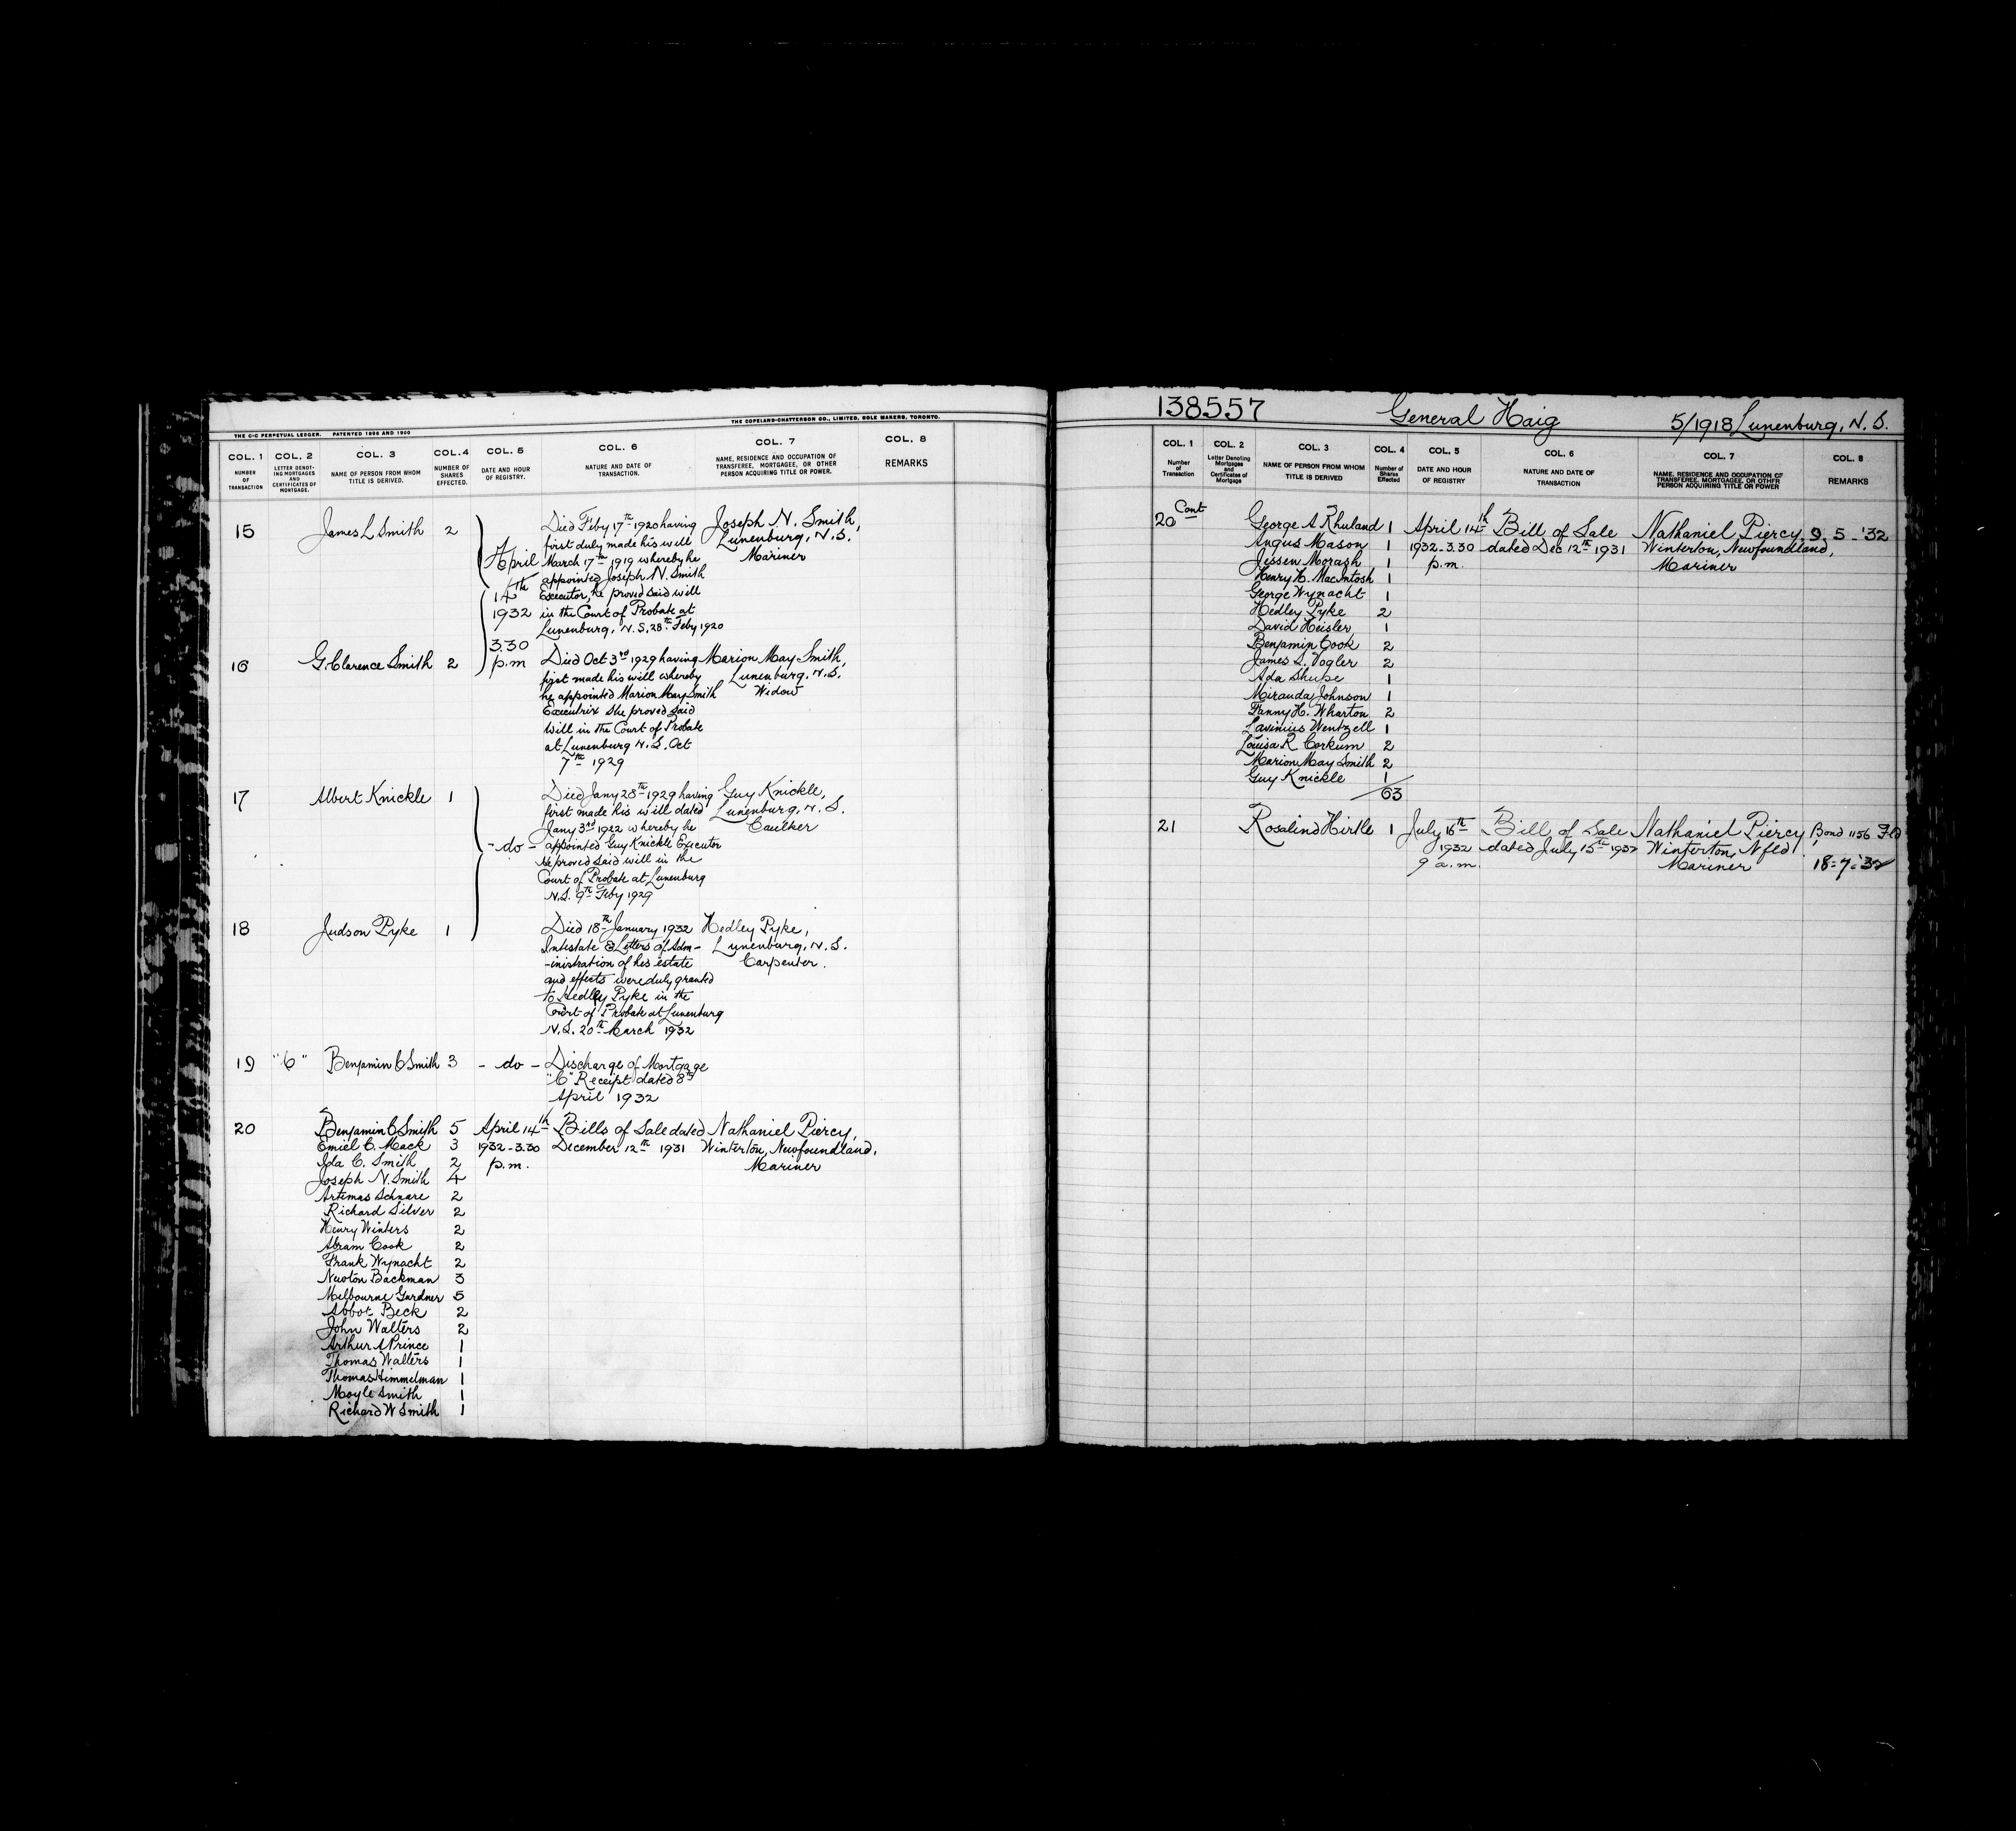 THE C-C PERPETUAL LEDGER. PATENTED 1898 AND 1900
THE COPELAND-CHATTERSON CO., LIMITED, SOLE MAKERS, TORONTO.
COL. 1 COL. 2 COL. 3 COL. 4 COL. 5 COL. 6 COL. 7 COL. 8
NUMBER OF TRANSACTION
LETTER DENOTING MORTGAGES AND CERTIFICATES OF MORTGAGE.
NAME OF PERSON FROM WHOM TITLE IS DERIVED.
NUMBER OF SHARES EFFECTED.
DATE AND HOUR OF REGISTRY.
NATURE AND DATE OF TRANSACTION.
NAME, RESIDENCE AND OCCUPATION OF TRANSFEREE, MORTGAGEE, OR OTHER PERSON ACQUIRING TITLE OR POWER.
REMARKS
15 James L Smith 2
April
14th
1932
3.30
p.m
Died Feby 17th 1920 having
first duly made his will
March 17th 1919 whereby he
appointed Joseph N. Smith
Executor, he proved said will
in the Court of Probate at
Lunenburg, N.S. 28th Feby 1920
Joseph N. Smith,
Lunenburg, N.S.
Mariner
16 G. Clarence Smith 2
Died Oct 3rd 1929 having
first made his will whereby
he appointed Marion May Smith
Executrix she proved said
will in the Court of Probate
at Lunenburg N.S. Oct
7th 1929
Marion May Smith,
Lunenburg, N.S.
Widow
17 Albert Knickle 1
- do -
Died Jany 28th 1929 having
first made his will dated
Jany 3rd 1922 whereby he
appointed Guy Knickle Executor
He proved said will in the
Court of Probate at Lunenburg
N.S. 9th Feby 1929
Guy Knickle,
Lunenburg, N.S.
Caulker
18 Judson Pyke 1
Died 18th January 1932
Intestate & Letters of Adm-
-inistration of his estate
and effects were duly granted
to Hedley Pyke in the
Court of Probate at Lunenburg
N.S. 20th March 1932
Hedley Pyke,
Lunenburg, N.S.
Carpenter.
19 "C" Benjamin C Smith 3 - do -
Discharge of Mortgage
"C" Receipt dated 8th
April 1932
20 Benjamin C Smith 5 April 14th Bills of Sale dated Nathaniel Piercy,
Emiel C. Mack 3 1932-3.30 December 12th 1931 Winterton, Newfoundland,
Ida C. Smith 2 p.m. Mariner
Joseph N. Smith 4
Artemas Schnare 2
Richard Silver 2
Henry Winters 2
Abram Cook 2
Frank Wynacht 2
Newton Backman 3
Melbourne Gardner 5
Abbot Beck 2
John Walters 2
Arthur A Prince 1
Thomas Walters 1
Thomas Himmelman 1
Moyle Smith 1
Richard W Smith 1
138557 General Haig 5/1918 Lunenburg, N.S.
COL. 1 COL. 2 COL. 3 COL. 4 COL. 5 COL. 6 COL. 7 COL. 8
Number of Transaction
Letter Denoting Mortgages and Certificates of Mortgage
NAME OF PERSON FROM WHOM TITLE IS DERIVED
Number of Shares Effected
DATE AND HOUR OF REGISTRY
NATURE AND DATE OF TRANSACTION
NAME, RESIDENCE AND OCCUPATION OF TRANSFEREE, MORTGAGEE, OR OTHER PERSON ACQUIRING TITLE OR POWER
REMARKS
Cont
20 George A Rhuland 1 April 14th Bill of Sale Nathaniel Piercy, 9.5-'32
Angus Mason 1 1932-3.30 dated Dec 12th 1931 Winterton, Newfoundland,
Jessen Morash 1 p.m. Mariner
Henry H. MacIntosh 1
George Wynacht 1
Hedley Pyke 2
David Heisler 1
Benjamin Cook 2
James L. Vogler 2
Ada Shupe 1
Miranda Johnson 1
Fanny H. Wharton 2
Lavinius Wentzell 1
Louisa R Corkum 2
Marion May Smith 2
Guy Knickle 1
63
21 Rosalind Hirtle 1 July 16th Bill of Sale Nathaniel Piercy, Bond 1156 Fld
1932 dated July 15th 1932 Winterton, Nfld
9 a.m. Mariner 18-7-32